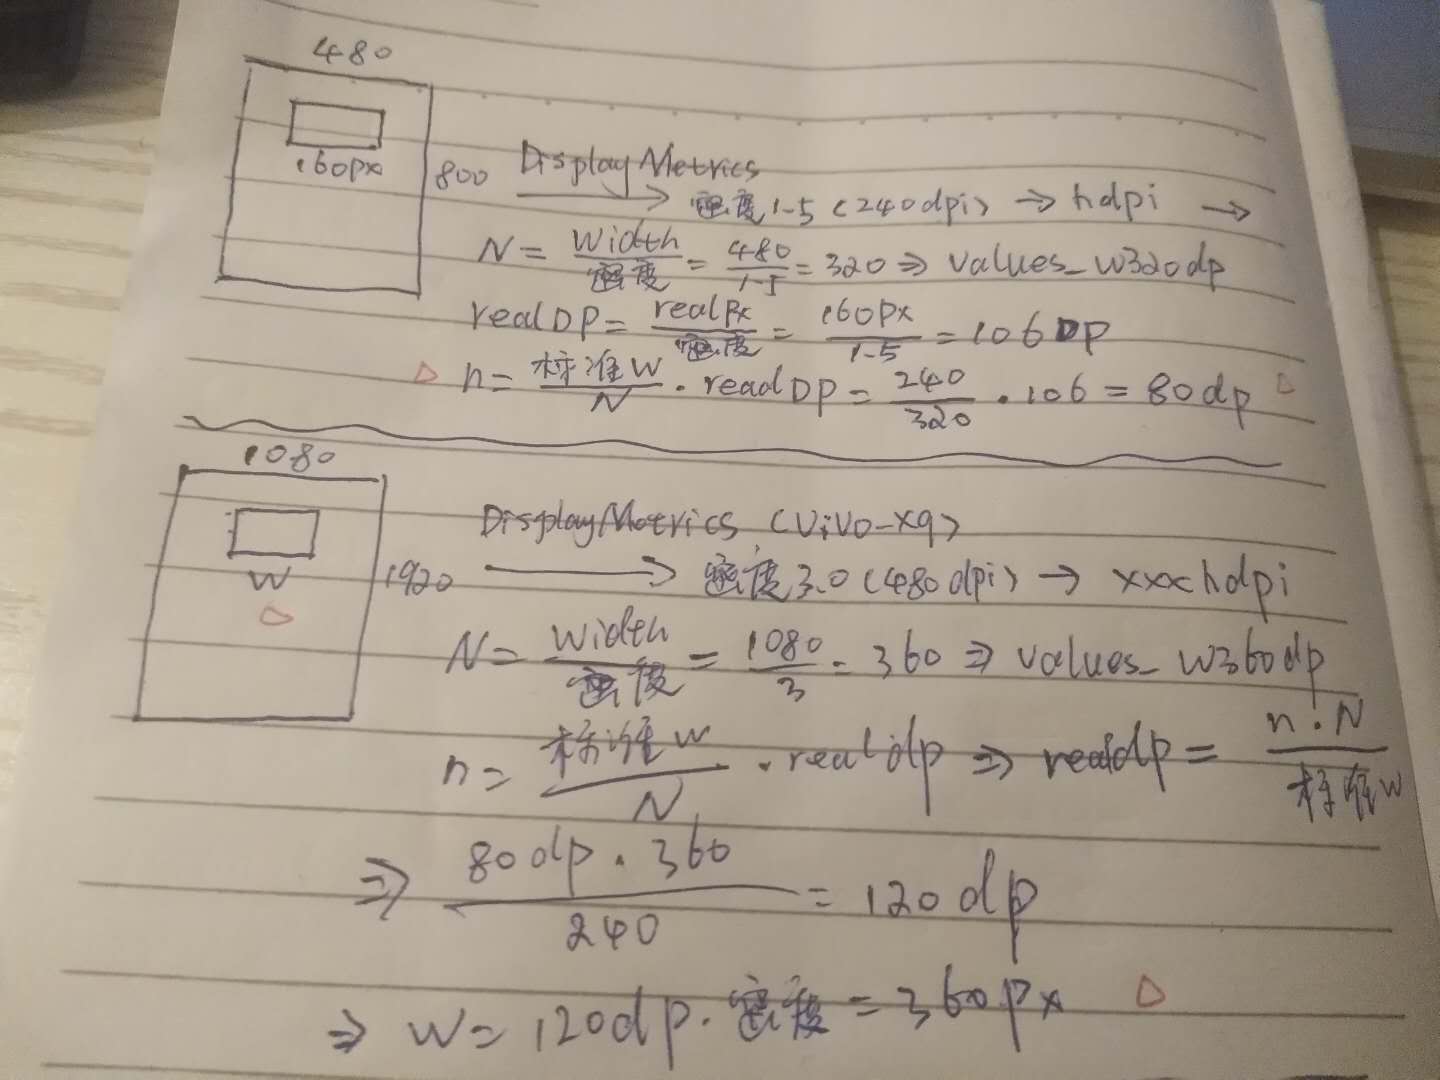 480
160px
800
DisplayMetrics
密度1-5(240dpi) → hdpi →
N = Width/密度 = 480/1-5 = 320 ⇒ values_w320dp
realDP = realPx/密度 = 160px/1-5 = 106DP
△ n = 标准W/N · readDP = 240/320 · 106 = 80dp △
1080
W
△
1920
DisplayMetrics (ViVo-X9)
密度3.0(480dpi) → xxxhdpi
N = Width/密度 = 1080/3 = 360 ⇒ values_w360dp
n = 标准W/N · realdp ⇒ realdp = n·N/标准W
⇒ 80dp·360/240 = 120dp
⇒ W = 120dp·密度 = 360px △